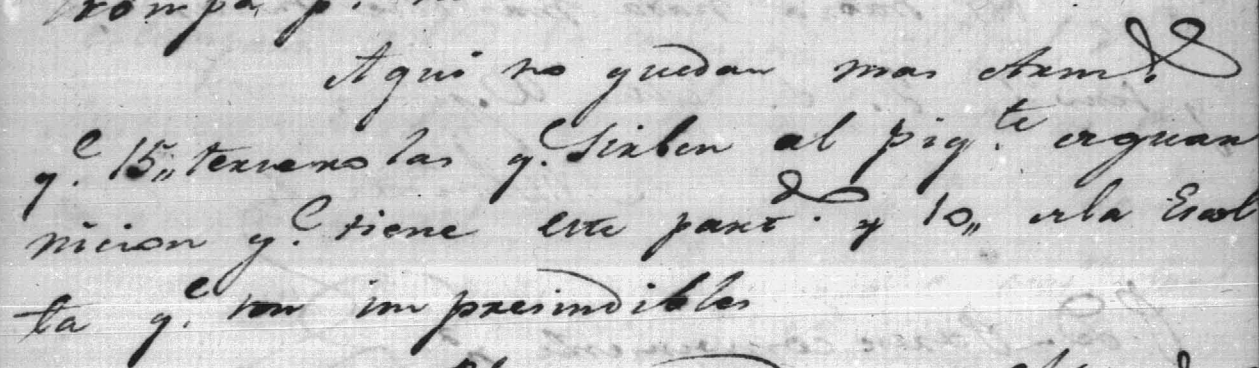 Aqui no quedan mas Arm.s
q.e 15,, tercerolas q.e Sirben al piq.te deguar
nicion q.e tiene este part.do y 10,, dela Escol
ta q.e son impresindibles